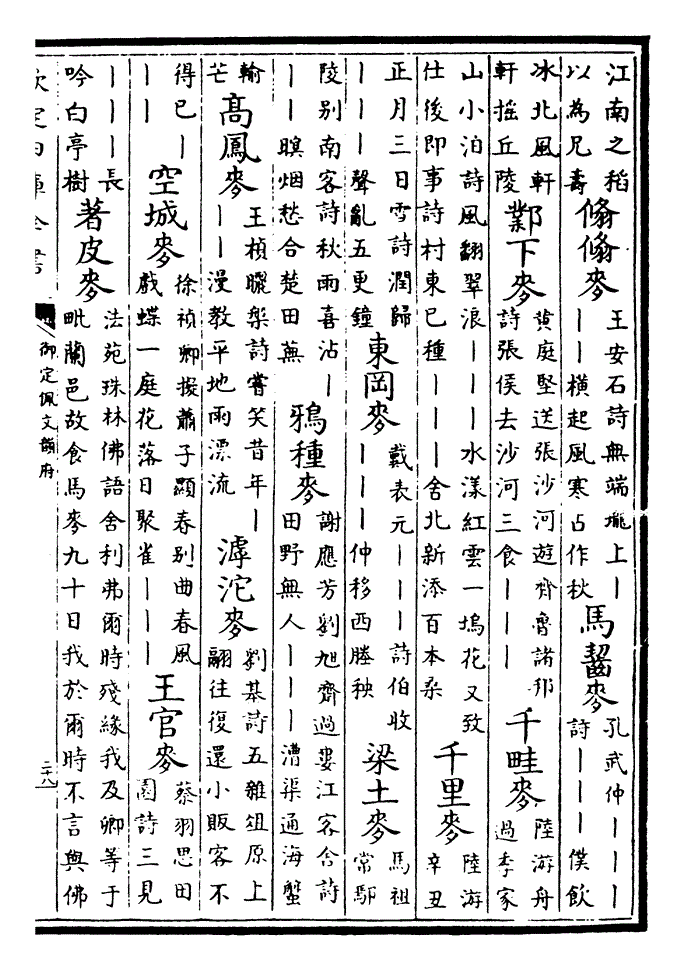 江南之稻
以為兄壽
翛翛麥
王安石詩無端壠上丨
丨橫起風寒占作秋
馬齧麥
孔武仲丨丨丨
詩丨丨丨僕飲
冰北風軒
軒搖丘陵
鄴下麥
黄庭堅送張沙河遊齊魯諸邦
詩張侯去沙河三食丨丨丨
千畦麥
陸游舟
過李家
山小泊詩風翻翠浪丨丨丨水漾紅雲一塢花又致
仕後即事詩村東已種丨丨丨舍北新添百本桑
千里麥
陸游
辛丑
正月三日雪詩潤歸
丨丨丨聲亂五更鐘
東岡麥
戴表元丨丨丨詩伯收
丨丨丨仲移西塍秧
梁土麥
馬祖
常鄢
陵别南客詩秋雨喜沾丨
丨丨暝烟愁合楚田蕪
鴉種麥
謝應芳劉旭齋過婁江客舍詩
田野無人丨丨丨漕渠通海蟹
輸
芒
高鳳麥
王楨曬槃詩嘗笑昔年丨
丨丨漫教平地雨漂流
滹沱麥
劉基詩五雜俎原上
翮往復還小販客不
得已丨
丨丨
空城麥
徐禎卿擬蕭子顯春别曲春風
戲蝶一庭花落日聚雀丨丨丨
王官麥
蔡羽思田
園詩三見
丨丨丨長
吟白亭樹
著皮麥
法苑珠林佛語舍利弗爾時殘緣我及卿等于
毗蘭邑故食馬麥九十日我於爾時不言與佛
欽定四庫全書
御定佩文韻府
二十八